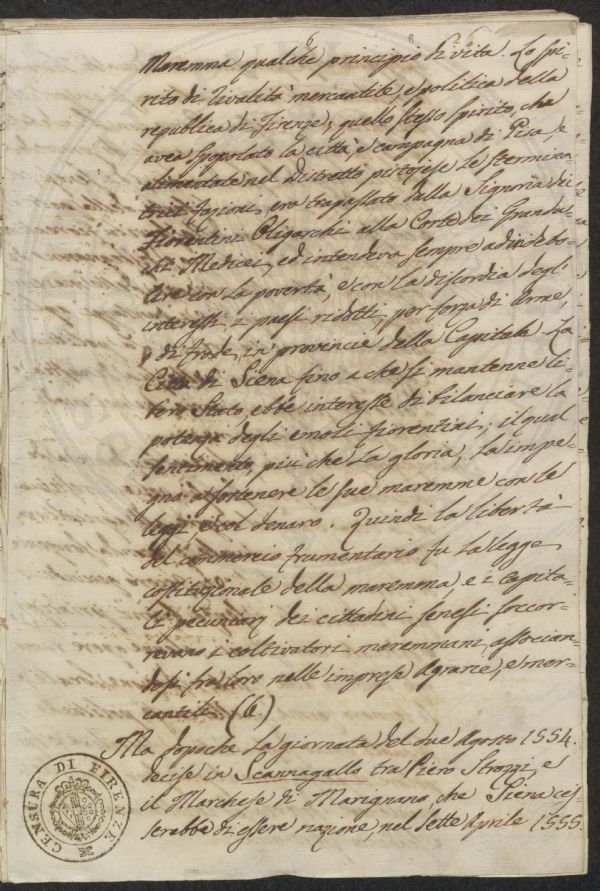 6 8
Maremma qualche principio di vita. Lo spi-
rito di rivalità mercantile, e politica della
republica di Firenze, quello stesso spirito, che
avea spopolato la città, e campagna di Pisa, e
alimentate nel distretto pistojese le stermina-
trici fazioni, era trapassato dalla Signoria dei
Fiorentini Oligarchi alla Corte dei Grandu-
chi Medicei, ed intendeva sempre ad indebo-
lire con la povertà, e con la discordia degl'
interessi, i paesi ridotti, per forza di arme,
o di frode, in provincie della Capitale. La
Città di Siena fino a che si mantenne li-
bero Stato, ebbe interesse di bilanciare la
potenza degli emoli fiorentini; il qual
sentimento, più che la gloria, la impe-
gnò a sostenere le sue maremme con le
leggi, e col denaro. Quindi la libertà
del commercio frumentario fu la legge
costituzionale della maremma, e i capita-
li pecuniarj dei cittadini senesi soccor-
revano i coltivatori maremmani, associan-
dosi fra loro nelle imprese Agrarie, e mer-
cantili. (6)
Ma dopoche la giornata del due Agosto 1554.
decise in Scannagallo tra Piero Strozzi, e
il Marchese di Marignano, che Siena ces-
serebbe di essere nazione, nel sette Aprile 1555.
CENSURA DI FIRENZE